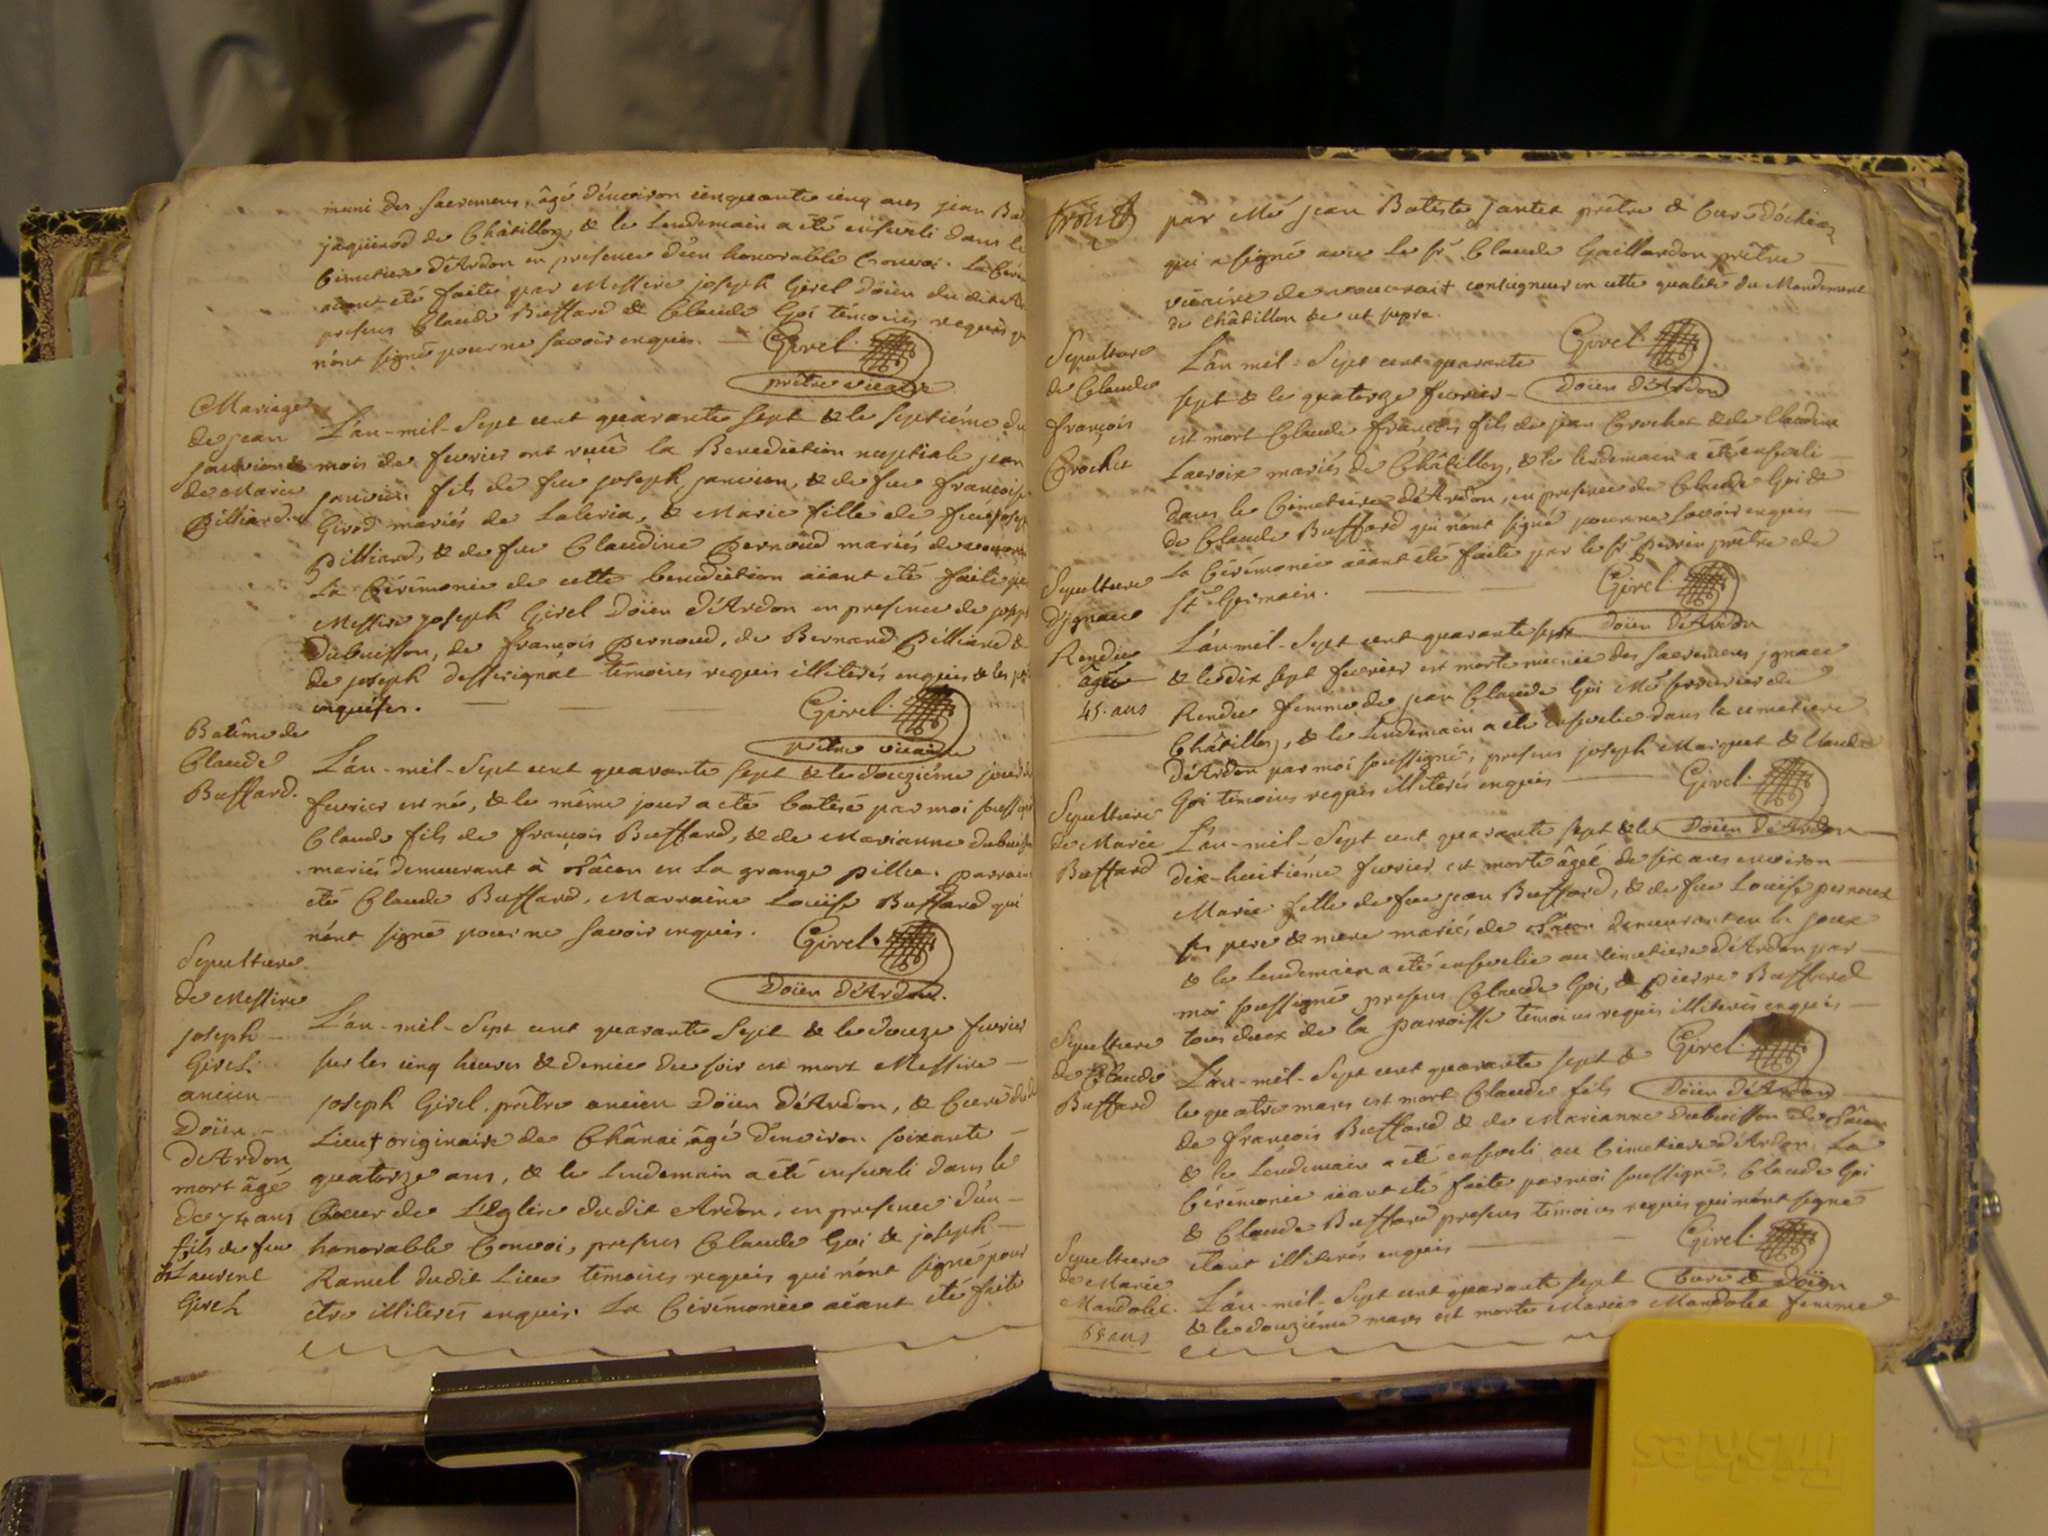 muni des sacremens, âgé d'environ cinquante cinq ans jean
jaquinod de Châtillon, & le lendemain a été enseveli dans le
Cimetiere d'Ardon en presence d'un honorable Convoi. La
aiant été faite par Messire joseph Girel Doïen dudit
presens Claude Buffard & Claude Goi témoins requis
n'ont signé pour ne savoir enquis. Girel
prêtre vicaire
Mariage
de jean
janvion &
de Marie
Billiard.
L'an-mil-Sept cent quarante sept & le septiéme du
mois de fevrier ont reçû la Benediction nuptiale jean
janvion fils de feu joseph janvion, & de feu francoise
Girod mariés de Laleria, & Marie fille de feu joseph
Billiard, & de feu Claudine Pernoud mariés de
La Cérémonie de cette benediction aïant été faite par
Messire joseph Girel Doïen d'Ardon en presence de joseph
Dubuisson, de françois Pernoud, de Bernard Billiard &
de joseph desserignat témoins requis illiterés enquis & les
enquises.
Girel
prêtre vicaire
Batême de
Claude
Buffard.
L'an-mil-Sept cent quarante sept & le douziéme jour de
fevrier est né, & le même jour a été batisé par moi soussigné
Claude fils de françois Buffard, & de Marianne dubuisson
mariés demeurant à en la grange pillie. parrain
été Claude Buffard, Marraine Louïse Buffard qui
n'ont signé pour ne savoir enquis. Girel.
Doïen d'Ardon.
Sepulture
de Messire
joseph
Girel
ancien
Doïen
d'Ardon
mort âgé
de 74 ans
fils de feu
Laurent
Girel
L'an-mil-Sept cent quarante Sept & le douze fevrier
sur les cinq heures & demie du soir est mort Messire
joseph Girel prêtre ancien Doïen d'Ardon, & Curé dudit
Lieu originaire de Chânai âgé d'environ soixante
quatorze ans, & le lendemain a été enseveli dans le
Coeur de L'Eglise dudit Ardon, en presence d'un
honorable Convoi, presens Claude Goi & joseph
Ramel dudit Lieu témoins requis qui n'ont signé pour
être illiterés enquis. La Cérémonie aïant été faite
par Mre jean Batiste jantet prêtre & Curé
qui a signé avec le Sr. Claude Gaillardon prêtre
vicaire de en cette qualité du Mandement
de Châtillon ut supra.
Girel.
Doïen d'Ardon
Sepulture
de Claude
françois
Crochet
L'an mil-Sept cent quarante
sept & le quatorze fevrier
est mort Claude françois fils de jean Crochet & de Claudine
Lacroix mariés de Châtillon, & le lendemain a été enseveli
dans le Cimetiere d'Ardon, en presence de Claude Goi &
de Claude Buffard qui n'ont signé pour ne savoir enquis
La Cérémonie aïant été faite par le Sr. perrin prêtre de
St. Germain.
Girel.
Doïen d'Ardon
Sepulture
d'ignace
Rendu
âgée
45. ans
L'an-mil-Sept cent quarante sept
& le dix sept fevrier est morte munie des sacremens ignace
Rendu femme de jean Claude Goi Me. serrurier de
Châtillon, & le lendemain a été ensevelie dans le cimetiere
d'Ardon par moi soussigné, presens joseph Marquet & Claude
Goi témoins requis illiterés enquis
Girel.
Doïen d'Ardon
Sepulture
de Marie
Buffard
L'an-mil-Sept cent quarante sept & le
dix-huitiéme fevrier est morte âgée de six ans environ
Marie fille de feu jean Buffard, & de feu Louïse pernoux
ses pere & mere mariés de demeurant en la joux
& le lendemain a été ensevelie au cimetiere d'Ardon par
moi soussigné presens Claude Goi, & pierre Buffard
tous deux de la parroisse témoins requis illiterés enquis
Girel.
Doïen d'Ardon
Sepulture
de Claude
Buffard
L'an-mil-Sept cent quarante sept &
le quatre mars est mort Claude fils
de françois Buffard & de Marianne Dubuisson de
& le lendemain a été enseveli au Cimetiere d'Ardon. La
Cérémonie aïant été faite par moi soussigné, Claude Goi
& Claude Buffard presens témoins requis qui n'ont signé
étant illiterés enquis
Girel.
Curé & Doïen
Sepulture
de Marie
Mandolet.
65 ans
L'an-mil-Sept cent quarante sept
& le douziéme mars est morte Marie Mandolet femme